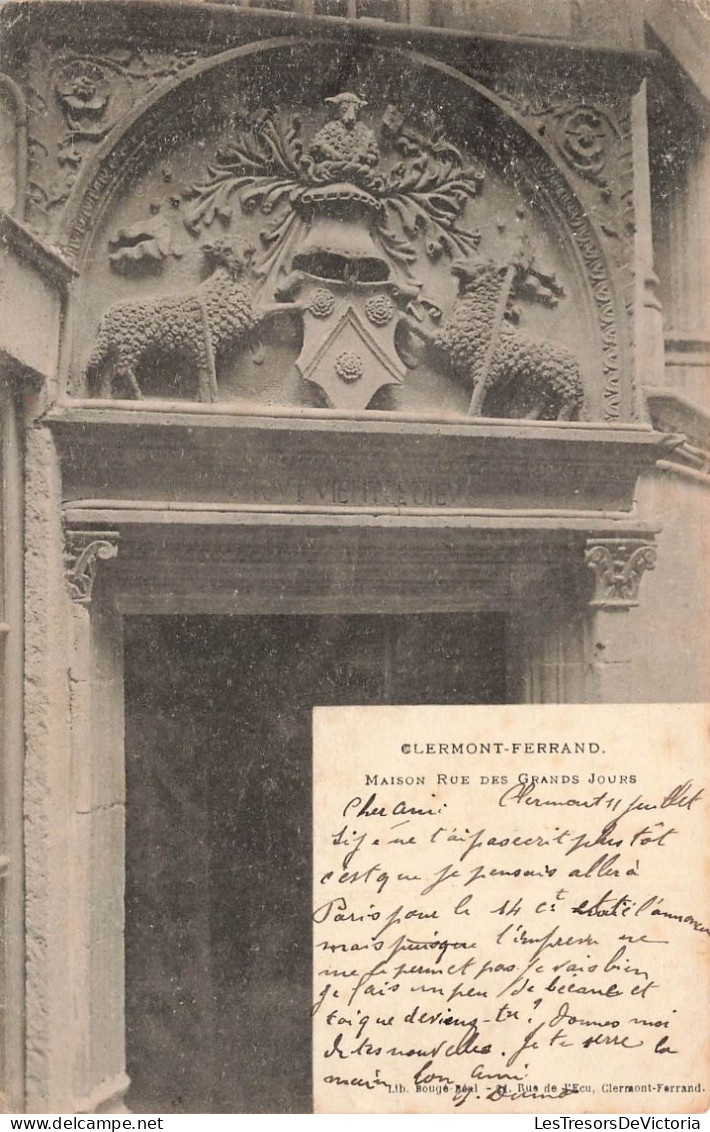 VIENT DE DIEV
CLERMONT-FERRAND.
MAISON RUE DES GRANDS JOURS
Cher Ami Clermont 11 juillet
Si je ne t'ai pas écrit plus tôt
c'est que je pensais aller à
Paris pour le 14 ct et te l'annoncer
mais puisque l'imprevu ne
me le permet pas je vais bien
je fais un peu de bécane et
toi que deviens-tu? Donnes moi
de tes nouvelles. Je te serre la
main Ton Ami
Lib. Bougé-Béal - 21, Rue de l'Ecu, Clermont-Ferrand.
www.LesTresorsDeVictoria.com